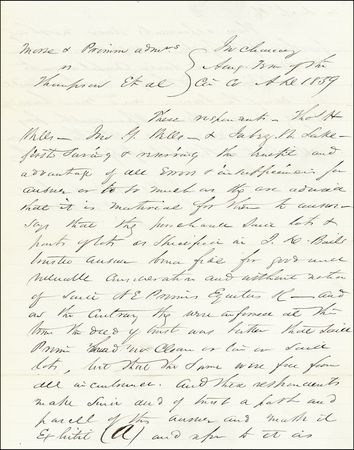 Morse & Primm admrs } In chancery
vs } Aug. Term of the
Thompson Et al } Cir Co A.D. 1859
These respondents Thos H
Wells – Jno G. Wells – & Lake
first saving & reserving the benefit and
advantage of all errors & insufficiencies for
answer or to so much as they are advised
that it is material for them to answer
says that they purchased said lots &
parts of lots as specified in
trustee answer bona fide for good and
valuable consideration and without notice
of said N E Primms Equities &c – and
on the contrary they were informed at the
time the deed of trust was taken that said
Primm had no claim or lien on said
lots, but that the same were free from
all incumbrance. And these respondents
make said deed of trust a part and
parcell of this answer and mark it
Exhibit (A) and refer to it as